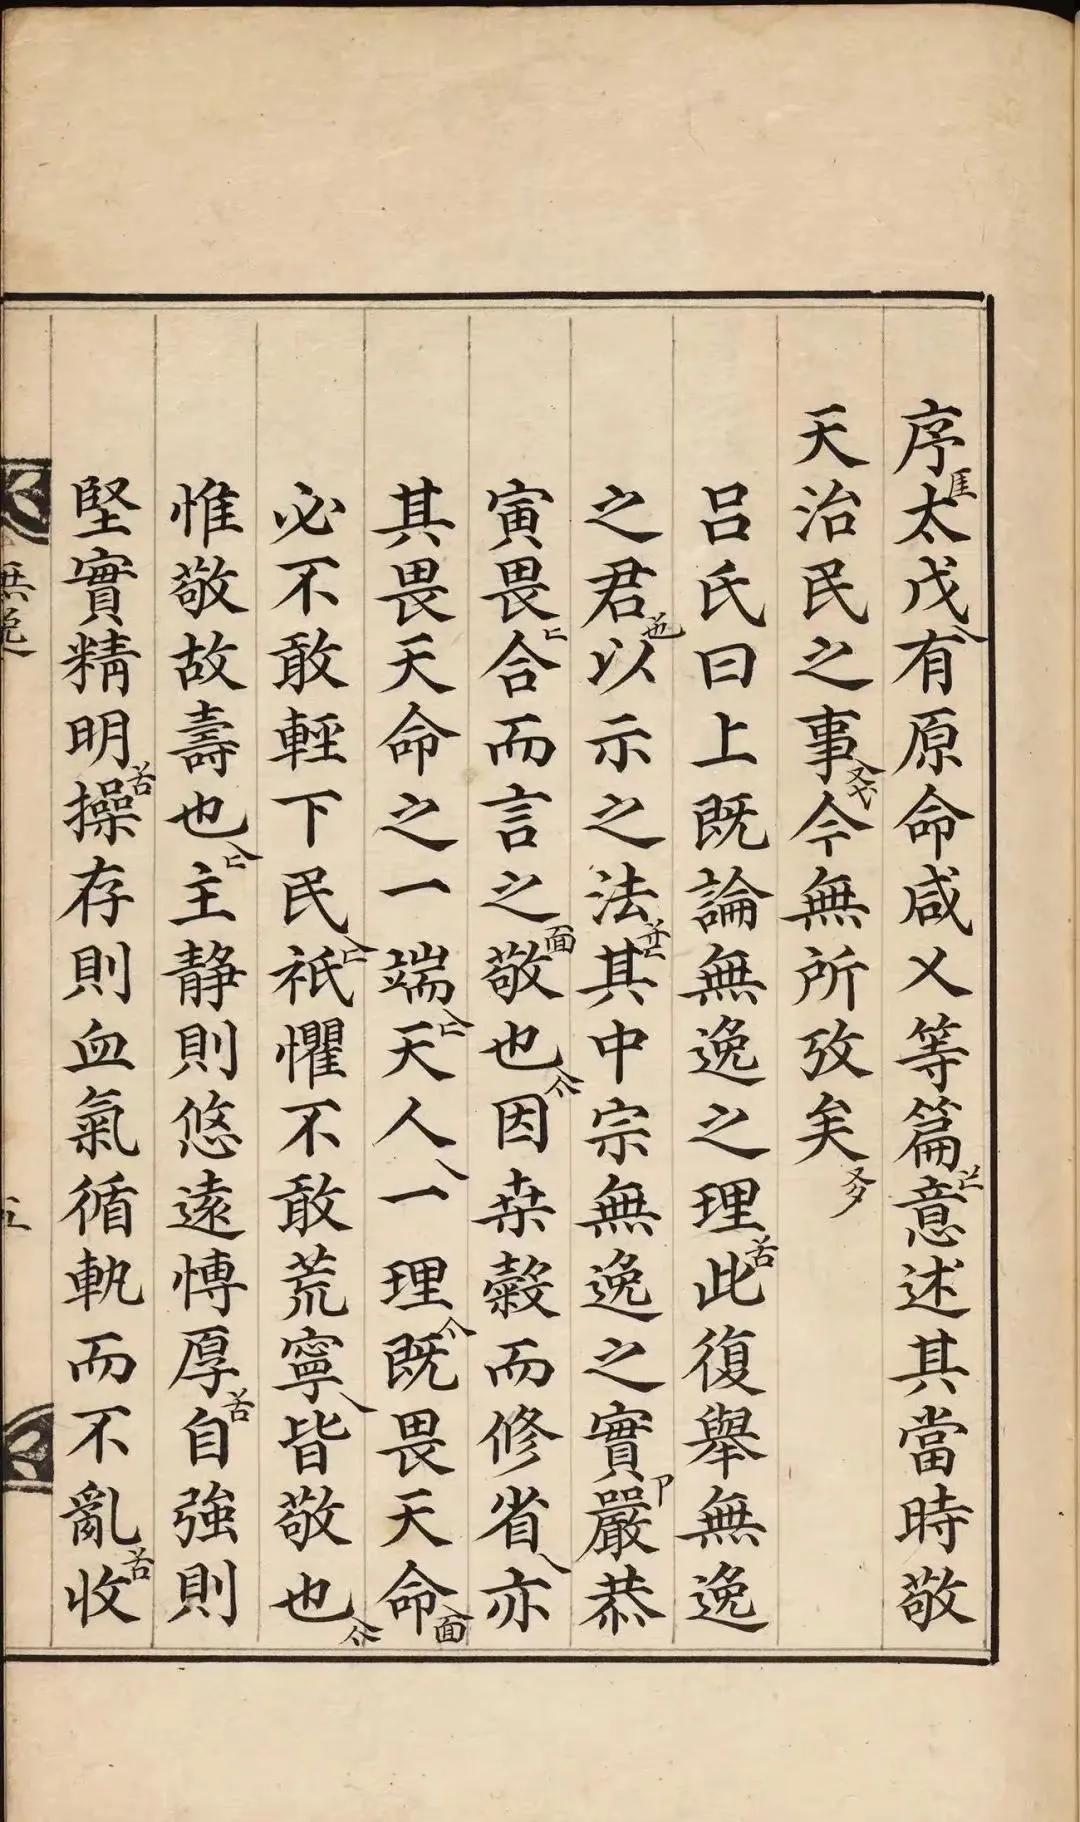 序太戊有原命咸乂等篇意述其當時敬
天治民之事今無所攷矣
吕氏曰上既論無逸之理此復舉無逸
之君以示之法其中宗無逸之實嚴恭
寅畏合而言之敬也因桒穀而修省亦
其畏天命之一端天人一理既畏天命
必不敢輕下民祗懼不敢荒寧皆敬也
惟敬故壽也主静則悠遠愽厚自強則
堅實精明操存則血氣循軌而不亂收
無逸